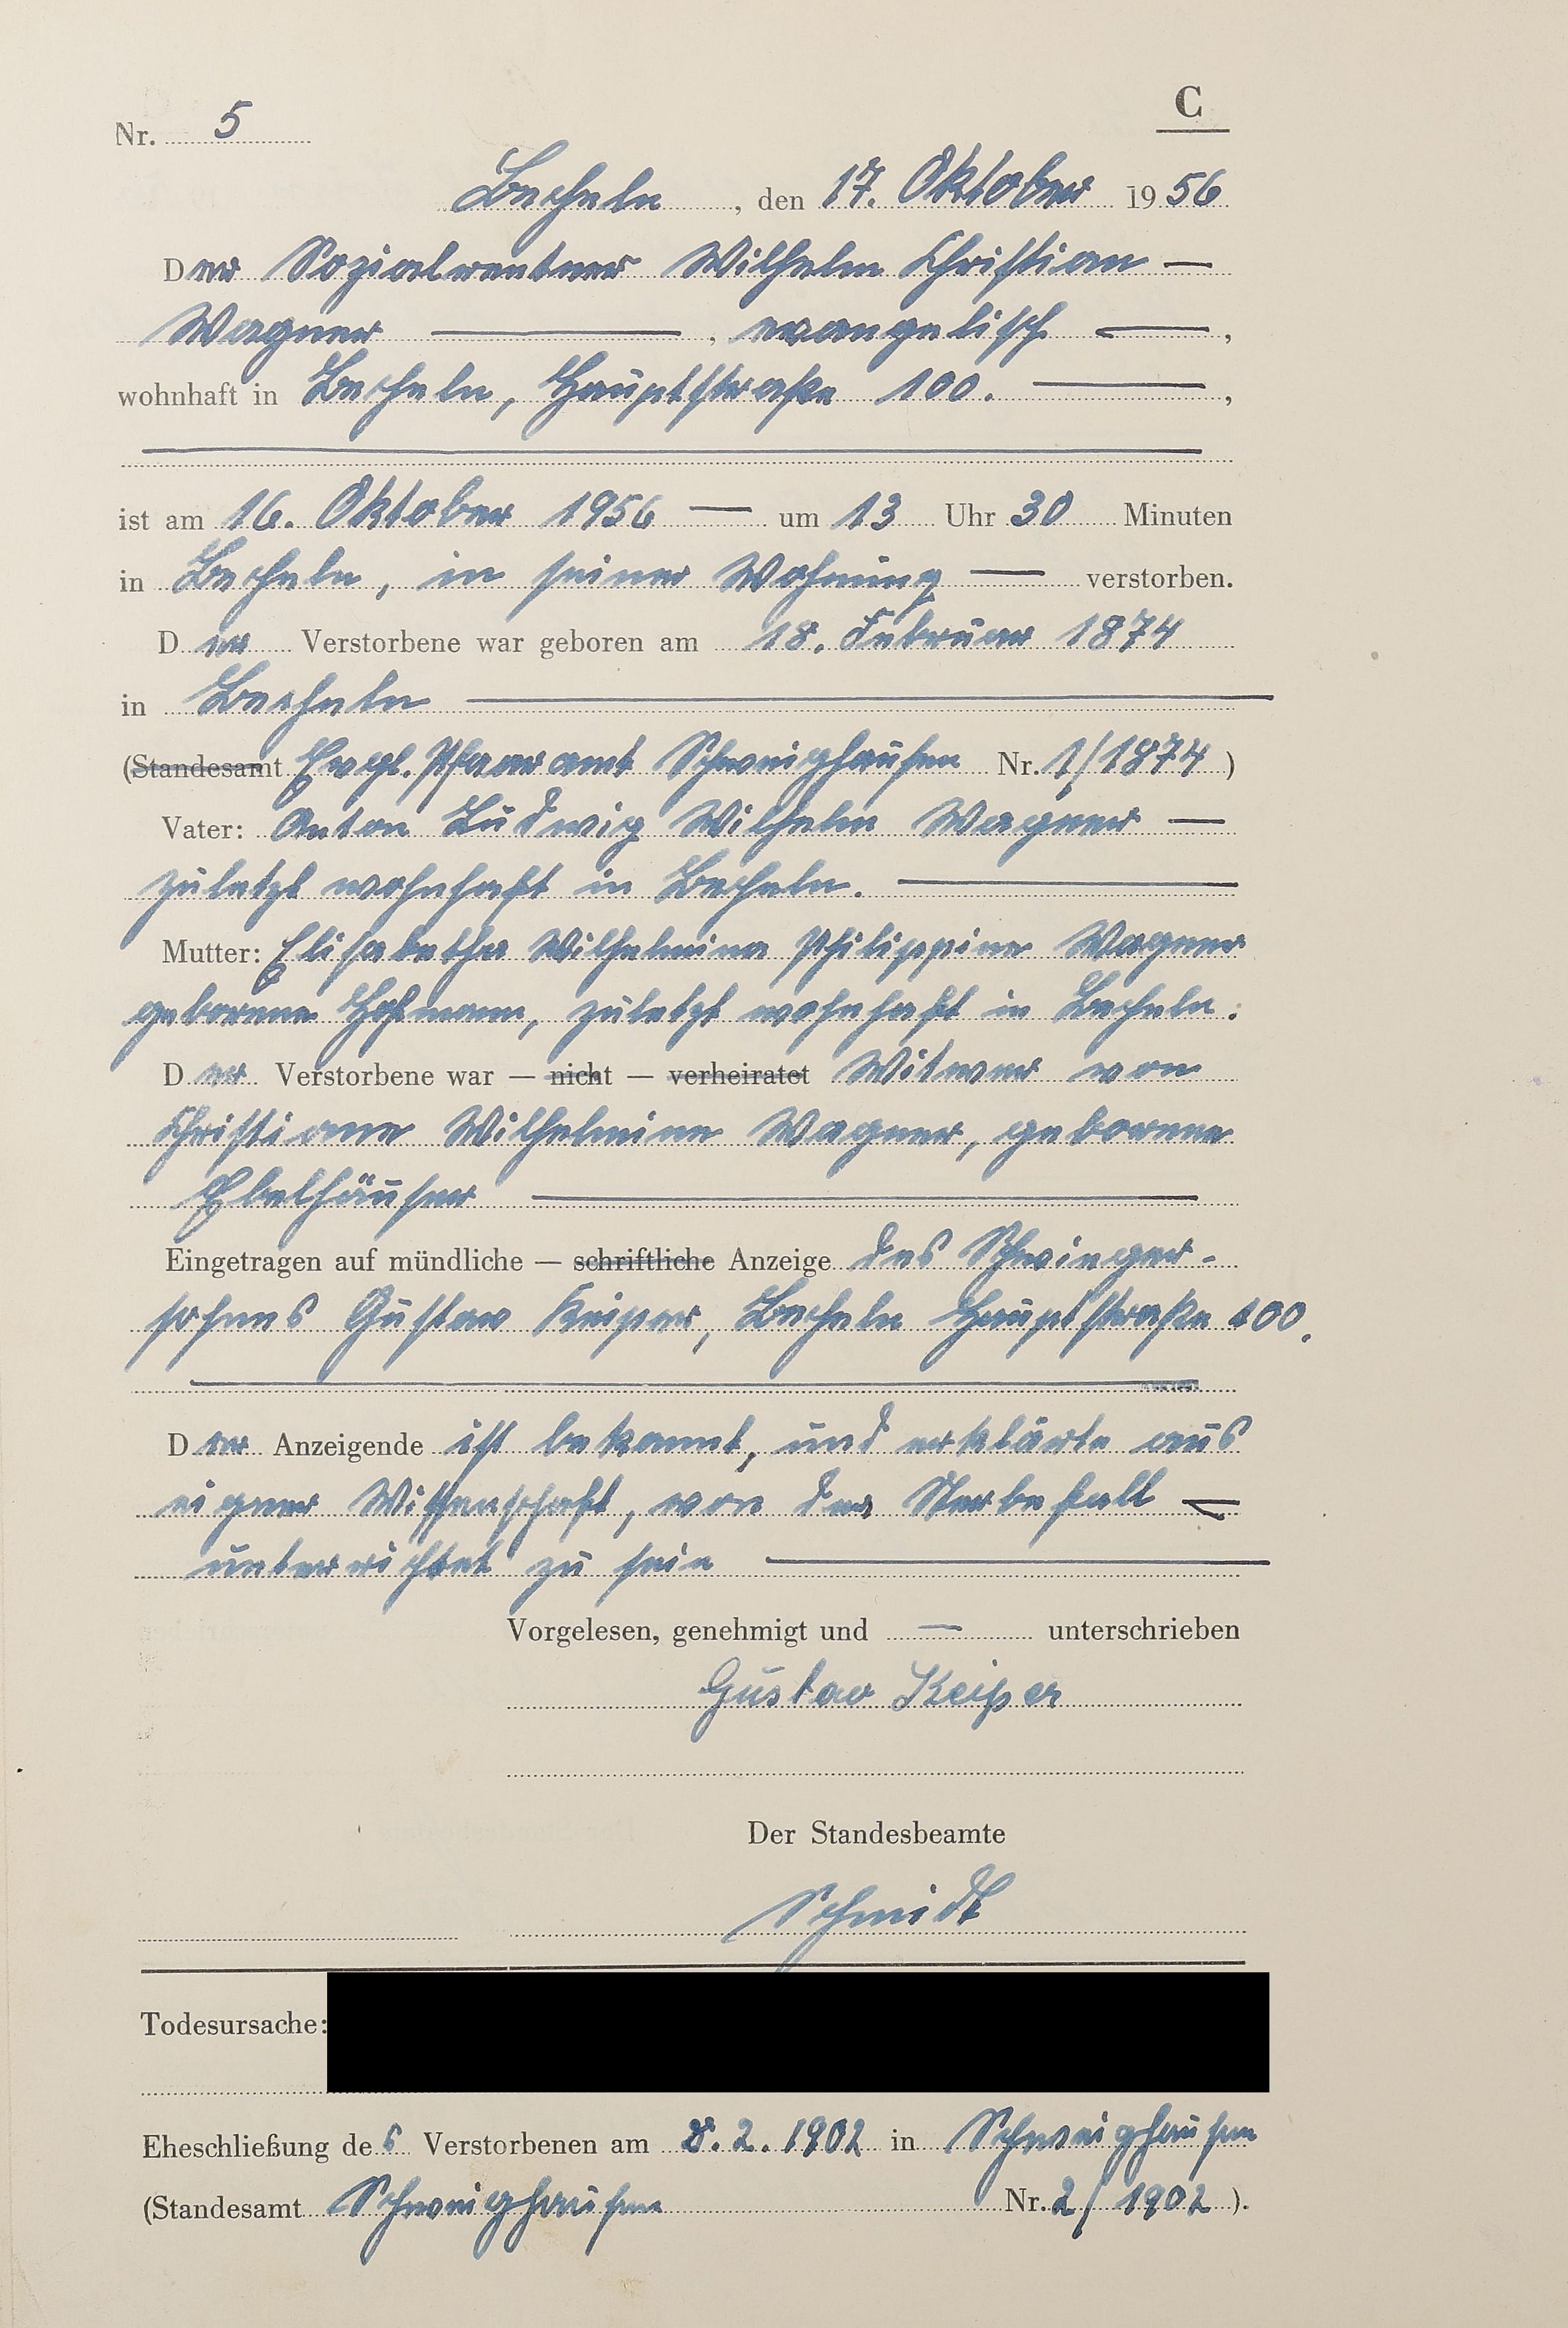 C
Nr. 5
Becheln, den 17. Oktober 1956
Der Sozialrentner Wilhelm Christian —
Wagner —, evangelisch —,
wohnhaft in Becheln, Hauptstraße 100. —,
ist am 16. Oktober 1956 — um 13 Uhr 30 Minuten
in Becheln, in seiner Wohnung — verstorben.
Der Verstorbene war geboren am 18. Februar 1874
in Becheln —
(Standesamt Evgl. Pfaaramt Schweighausen Nr. 1/1874)
Vater: Anton Ludwig Wilhelm Wagner —
zuletzt wohnhaft in Becheln. —
Mutter: Elisabetha Wilhelmina Philippine Wagner
geborene Hofmann, zuletzt wohnhaft in Becheln.
Der Verstorbene war — nicht — verheiratet Witwer von
Christiane Wilhelmine Wagner, geborene
Ebelhäuser —
Eingetragen auf mündliche — schriftliche Anzeige des Schwieger-
sohnes Gustav Keiper, Becheln Hauptstraße 100.
Der Anzeigende ist bekannt, und erklärte aus
eigner Wissenschaft, von der Sterbefall —
unterrichtet zu sein —
Vorgelesen, genehmigt und — unterschrieben
Gustav Keiper
Der Standesbeamte
Schmidt
Todesursache:
Eheschließung des Verstorbenen am 8.2.1902 in Schweighausen
(Standesamt Schweighausen Nr. 2/1902).